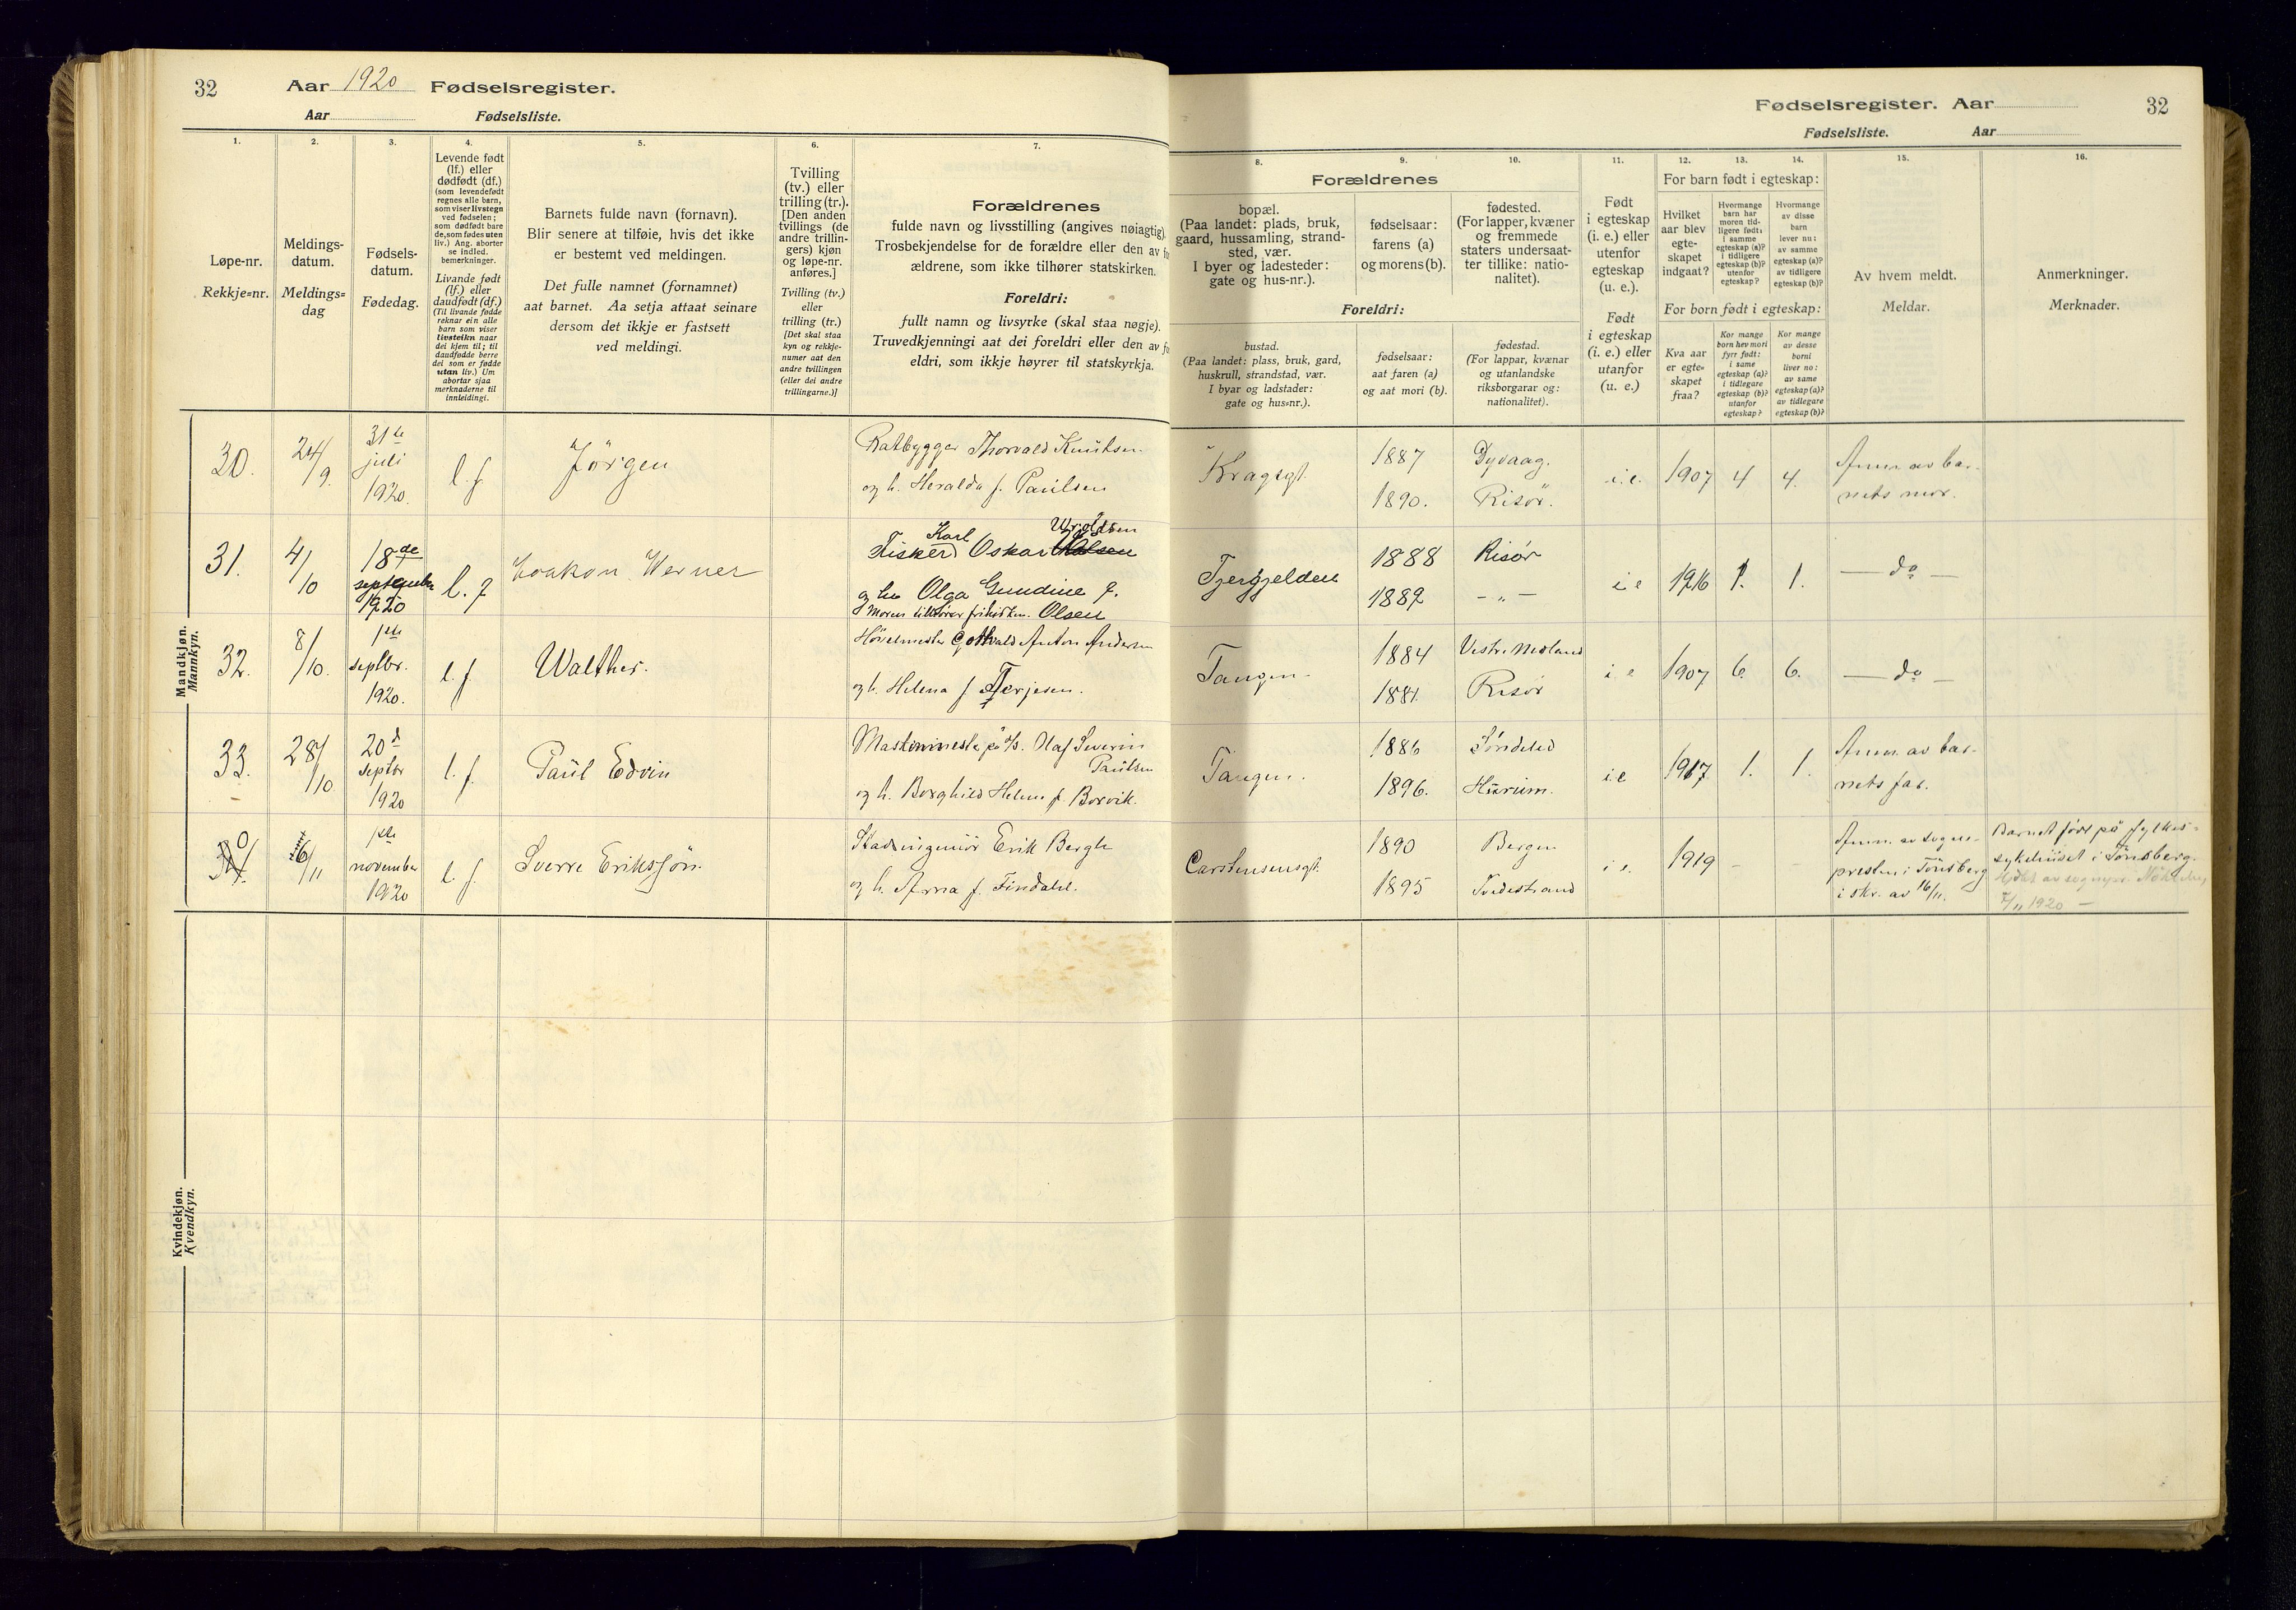 32
Aar 1920 Fødselsregister.
Aar Fødselsliste.
1.
Løpe-nr.
Rekkje=nr.
2.
Meldings-
datum.
Meldings=
dag
3.
Fødsels-
datum.
Fødedag.
4.
Levende født
(lf.) eller
dødfødt (df.)
(som levendefødt
regnes alle barn,
som viser livstegn
ved fødselen;
som dødfødt bare
de, som fødes uten
liv.) Ang. aborter
se indled.
bemerkninger.
Livande født
(lf.) eller
daudfødt (df.)
(Til livande fødde
reknar ein alle
barn som viser
livsteikn naar
dei kjem til; til
daudfødde berre
dei som er fødde
utan liv.) Um
abortar sjaa
merknaderne til
innleidingi.
5.
Barnets fulde navn (fornavn).
Blir senere at tilføie, hvis det ikke
er bestemt ved meldingen.
Det fulle namnet (fornamnet)
aat barnet. Aa setja attaat seinare
dersom det ikkje er fastsett
ved meldingi.
6.
Tvilling
(tv.) eller
trilling (tr.).
[Den anden
tvillings (de
andre trillin-
gers) kjøn
og løpe-nr.
anføres.]
Tvilling (tv.)
eller
trilling (tr.)
[Det skal staa
kyn og rekkje-
numer aat den
andre tvillingen
(eller dei andre
trillingarne.)]
7.
Forældrenes
fulde navn og livsstilling (angives nøiagtig).
Trosbekjendelse for de forældre eller den av
ældrene, som ikke tilhører statskirken.
Foreldri:
fullt namn og livsyrke (skal staa nøgje).
Truvedkjenningi aat dei foreldri eller den av
eldri, som ikkje høyrer til statskyrkja.
Fødselsregister. Aar
32
Fødselsliste. Aar
8.
9.
10.
Forældrenes
bopæl.
(Paa landet: plads, bruk,
gaard, hussamling, strand-
sted, vær.
I byer og ladesteder:
gate og hus-nr.).
fødselsaar:
farens (a)
og morens (b).
fødested.
(For lapper, kvæner
og fremmede
staters undersaat-
ter tillike: natio-
nalitet).
Foreldri:
bustad.
(Paa landet: plass, bruk, gard,
huskrull, strandstad, vær.
I byar og ladstader:
gate og hus=nr.).
fødselsaar:
aat faren (a)
og aat mori (b).
fødestad.
(For lappar, kvænar
og utanlandske
riksborgarar og:
nationalitet).
11.
Født
i egteskap
(i. e.) eller
utenfor
egteskap
(u. e.).
Født
i egteskap
(i. e.) eller
utanfor
(u. e.)
12.
13.
14.
For barn født i egteskap:
Hvilket
aar blev
egte-
skapet
indgaat?
Hvormange
barn har
moren tid-
ligere født:
i samme
egteskap (a)?
i tidligere
egteskap (b)?
utenfor
egteskap?
Hvormange
av disse
barn
lever nu:
av samme
egteskap (a)?
av tidligere
egteskap (b)?
For born født i egteskap:
Kva aar
er egte=
skapet
fraa?
Kor mange
born hev mori
fyrr født:
i same
egteskap (a)?
i tidlegare
egteskap (b)?
utanfor
egteskap?
Kor mange
av desse
borni
liver no:
av same
egteskap (a)?
av tidlegare
egteskap (b)?
15.
Av hvem meldt.
Meldar.
16.
Anmerkninger.
Merknader.
Mandkjøn.
Mannkyn.
30. 24/9. 31te juli 1920. l. f. Jörgen
Baatbygger Thorvald Knutsen
og h. Heralda f. Paulsen
Kragsgt. 1887 Dyvaag. i.e. 1907 4 4. Anm. av bar-
1890. Risör. nets mor.
31. 4/10 18de september 1920 l. f Haakon Werner
Karl
Fisker Oskar Olsen
og h. Olga Gundine f.
Moren tilhører frikirken. Olsen
Tjergjelden 1888 Risör i e 1916 1. 1. — do —
1889 – „ –
32. 8/10. 1ste septbr. 1920. l. f Walther.
Hövelmester Gothvald Anton Andersen
og h. Helena f Terjesen.
Tangen. 1884 Vestre Moland i e 1907 6. 6. — do —
1881. Risör
33. 28/10 20d septbr 1920 l. f. Paul Edvin
Maskinmester på d/s. Olaf Severin
Paulsen
og h. Borghild Helene f. Borvik.
Tangen. 1886 Söndeled i.e 1917 1. 1. Anm. av bar-
1896. Hurum. nets far.
6/11 1ste november 1920 l. f. Sverre Eriksson
Stadsingeniör Erik Bergh
og h. Arna f. Findahl.
Carstensensgt. 1890 Bergen i e. 1919 – –
1895 Tvedestrand
Anm. av sogne-
presten i Tönsberg
i skr. av 16/11.
Barnet födt på fylkes-
sykehuset i Tönsberg.
11 1920 –
Kvindekjøn.
Kvendkyn.